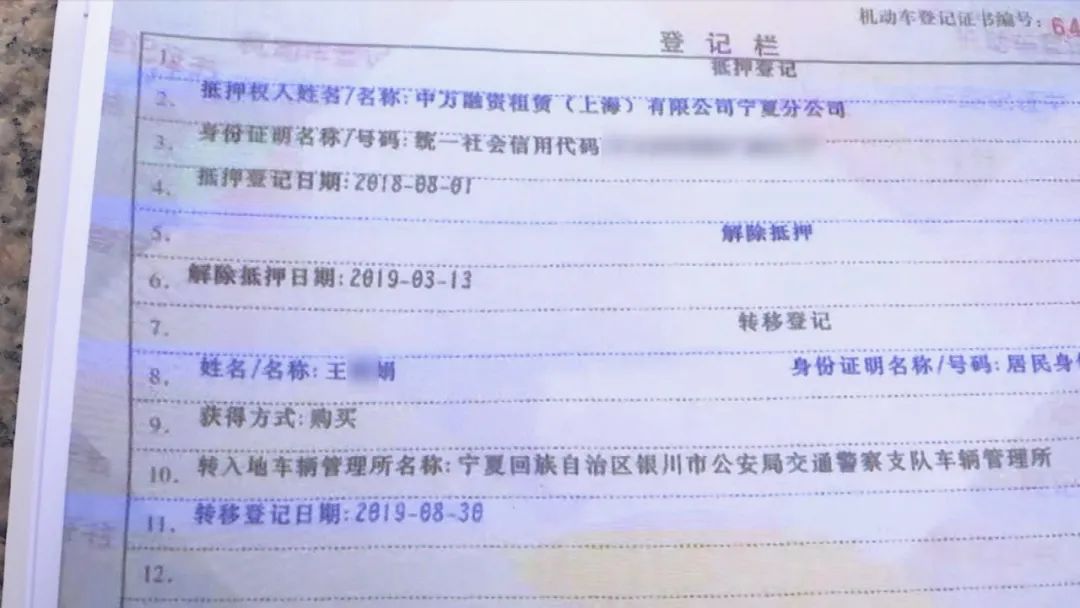 机动车登记证书编号:64
登记栏
1. 抵押登记
2. 抵押权人姓名/名称:申万融资租赁(上海)有限公司宁夏分公司
3. 身份证明名称/号码:统一社会信用代码
4. 抵押登记日期:2018-08-01
5. 解除抵押
6. 解除抵押日期:2019-03-13
7. 转移登记
8. 姓名/名称:王 娟 身份证明名称/号码:居民身
9. 获得方式:购买
10. 转入地车辆管理所名称:宁夏回族自治区银川市公安局交通警察支队车辆管理所
11. 转移登记日期:2019-08-30
12.